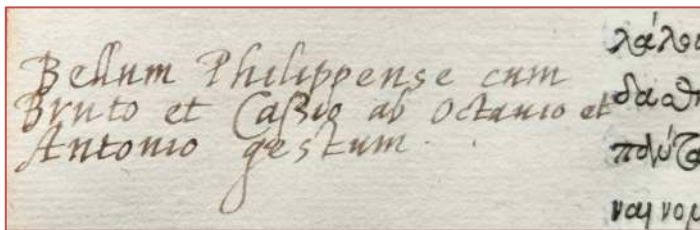 Bellum Philippense cum
Bruto et Caßio ab Octauio et
Antonio gestum.